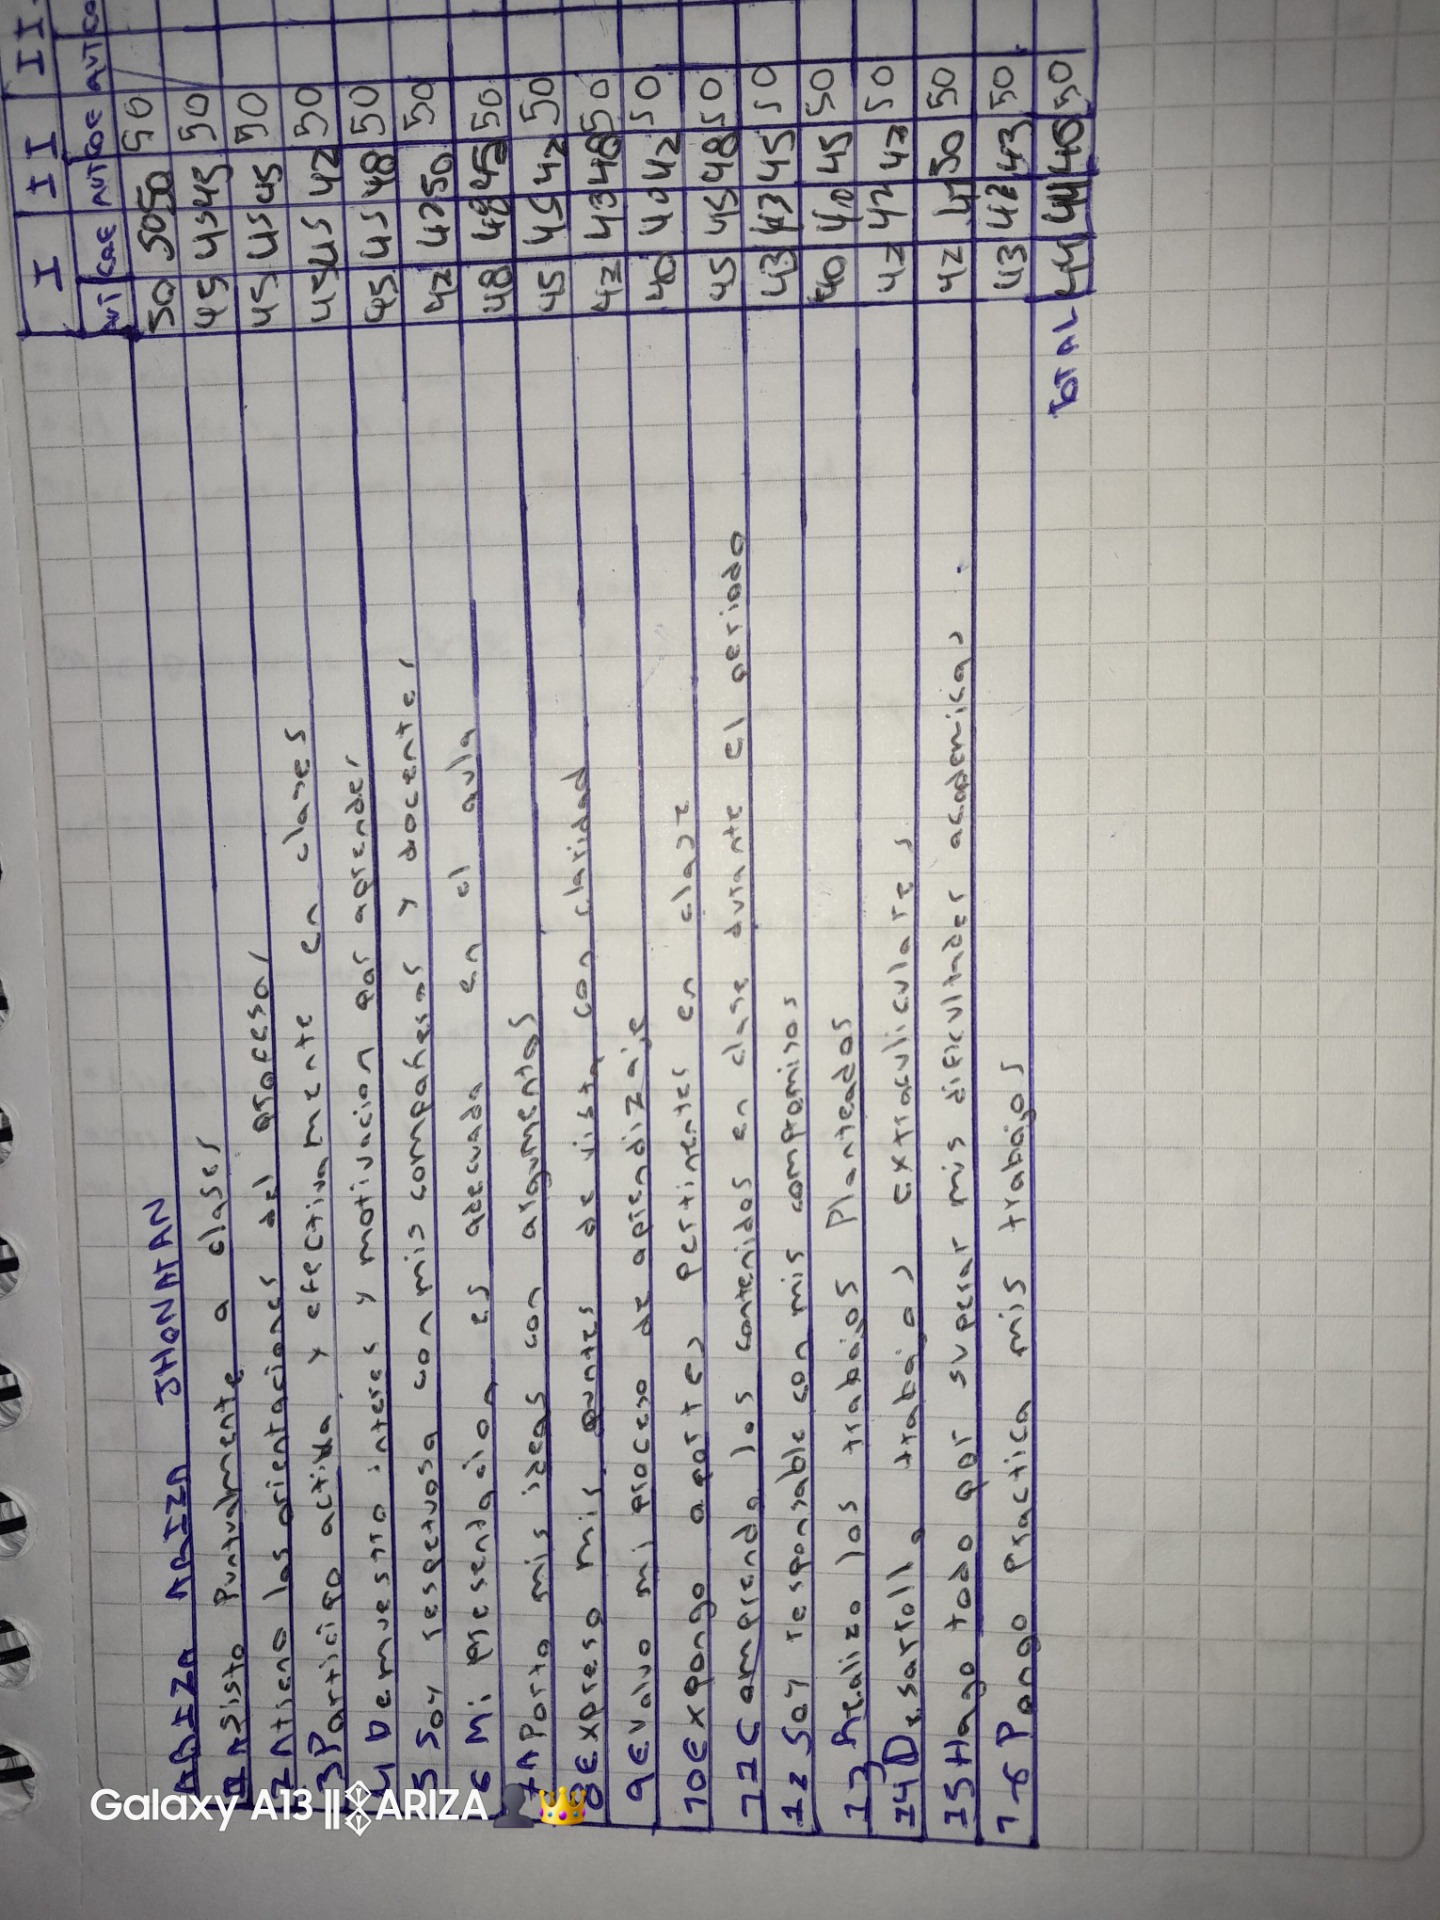 I II II
AUT COE AUT COE AUT CO
ARIZA ARIZA JHONATAN 50 50 50 50
1 Asisto Puntualmente a clases 45 45 45 50
2 Atieno las orientaciones del profesor 45 45 45 50
3 Participo activa y efectivamente en clases 45 45 42 50
4 Demuestro interes y motivacion por aprender 45 45 48 50
5 Soy respetuosa con mis compañeros y docentes 42 42 50 50
6 Mi presentacion es adecuada en el aula 48 48 45 50
7 Aporto mis ideas con argumentos 45 45 42 50
8 Expreso mis puntos de vista con claridad 42 43 48 50
9 Evaluo mi proceso de aprendizaje 40 40 42 50
10 Expongo aportes pertinentes en clase 45 45 48 50
11 Comprendo los contenidos en clase durante el periodo 43 43 45 50
12 Soy responsable con mis compromisos 40 40 45 50
13 Realizo los trabajos Planteados 42 42 42 50
14 Desarrollo trabajos extraculiculares 42 41 50 50
15 Hago todo por superar mis dificultades academicas. 43 42 43 50
16 Pongo Practica mis trabajos
TOTAL 44 44 45 50
Galaxy A13 || ARIZA